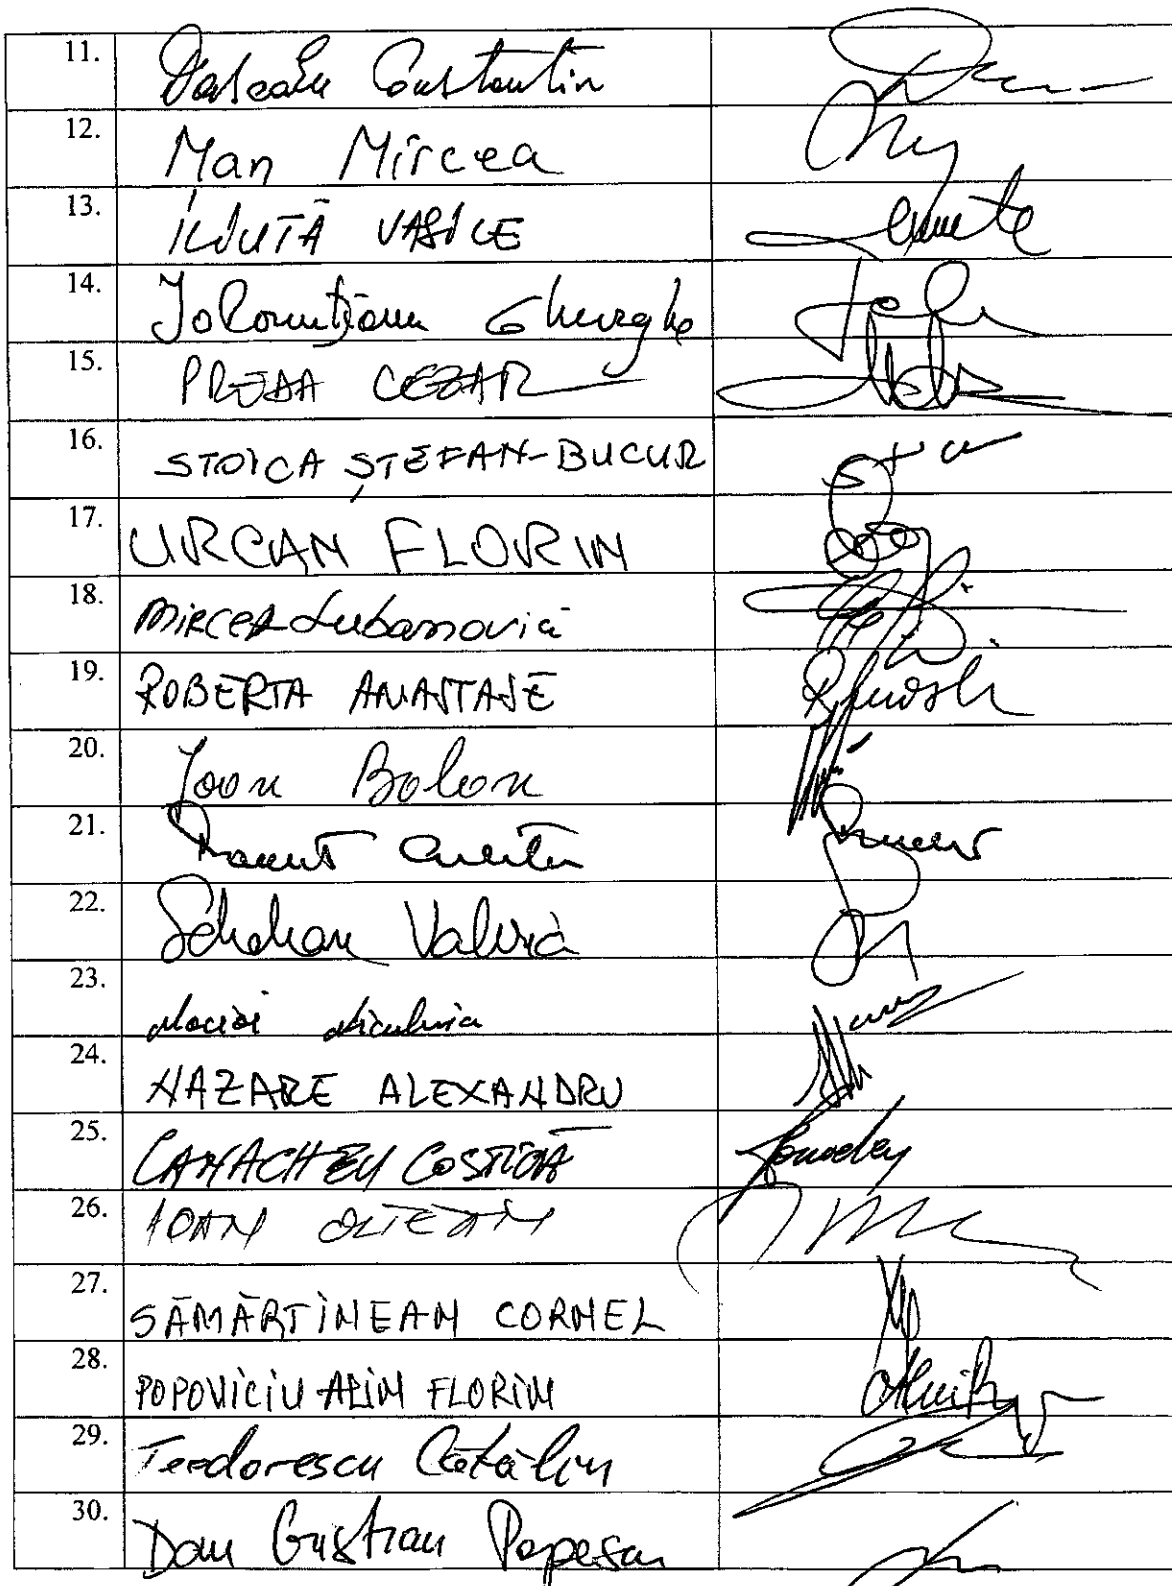 11. Dascalu Constantin
12. Man Mircea
13. ILIUȚĂ VASILE
14. Jolomițianu Gheorghe
15. PREDA CEZAR
16. STOICA ȘTEFAN-BUCUR
17. URCAN FLORIN
18. MIRCEA Lubanovici
19. ROBERTA ANASTASE
20. Ioan Bolon
21.
22. Schelean Valeria
23. Mocioi Niculina
24. NAZARE ALEXANDRU
25. CANACHEU COSTICĂ
26. IOAN OLTEAN
27. SĂMĂRTINEAN CORNEL
28. POPOVICIU ALIN FLORIN
29. Teodorescu Cătălin
30. Dan Cristian Popescu